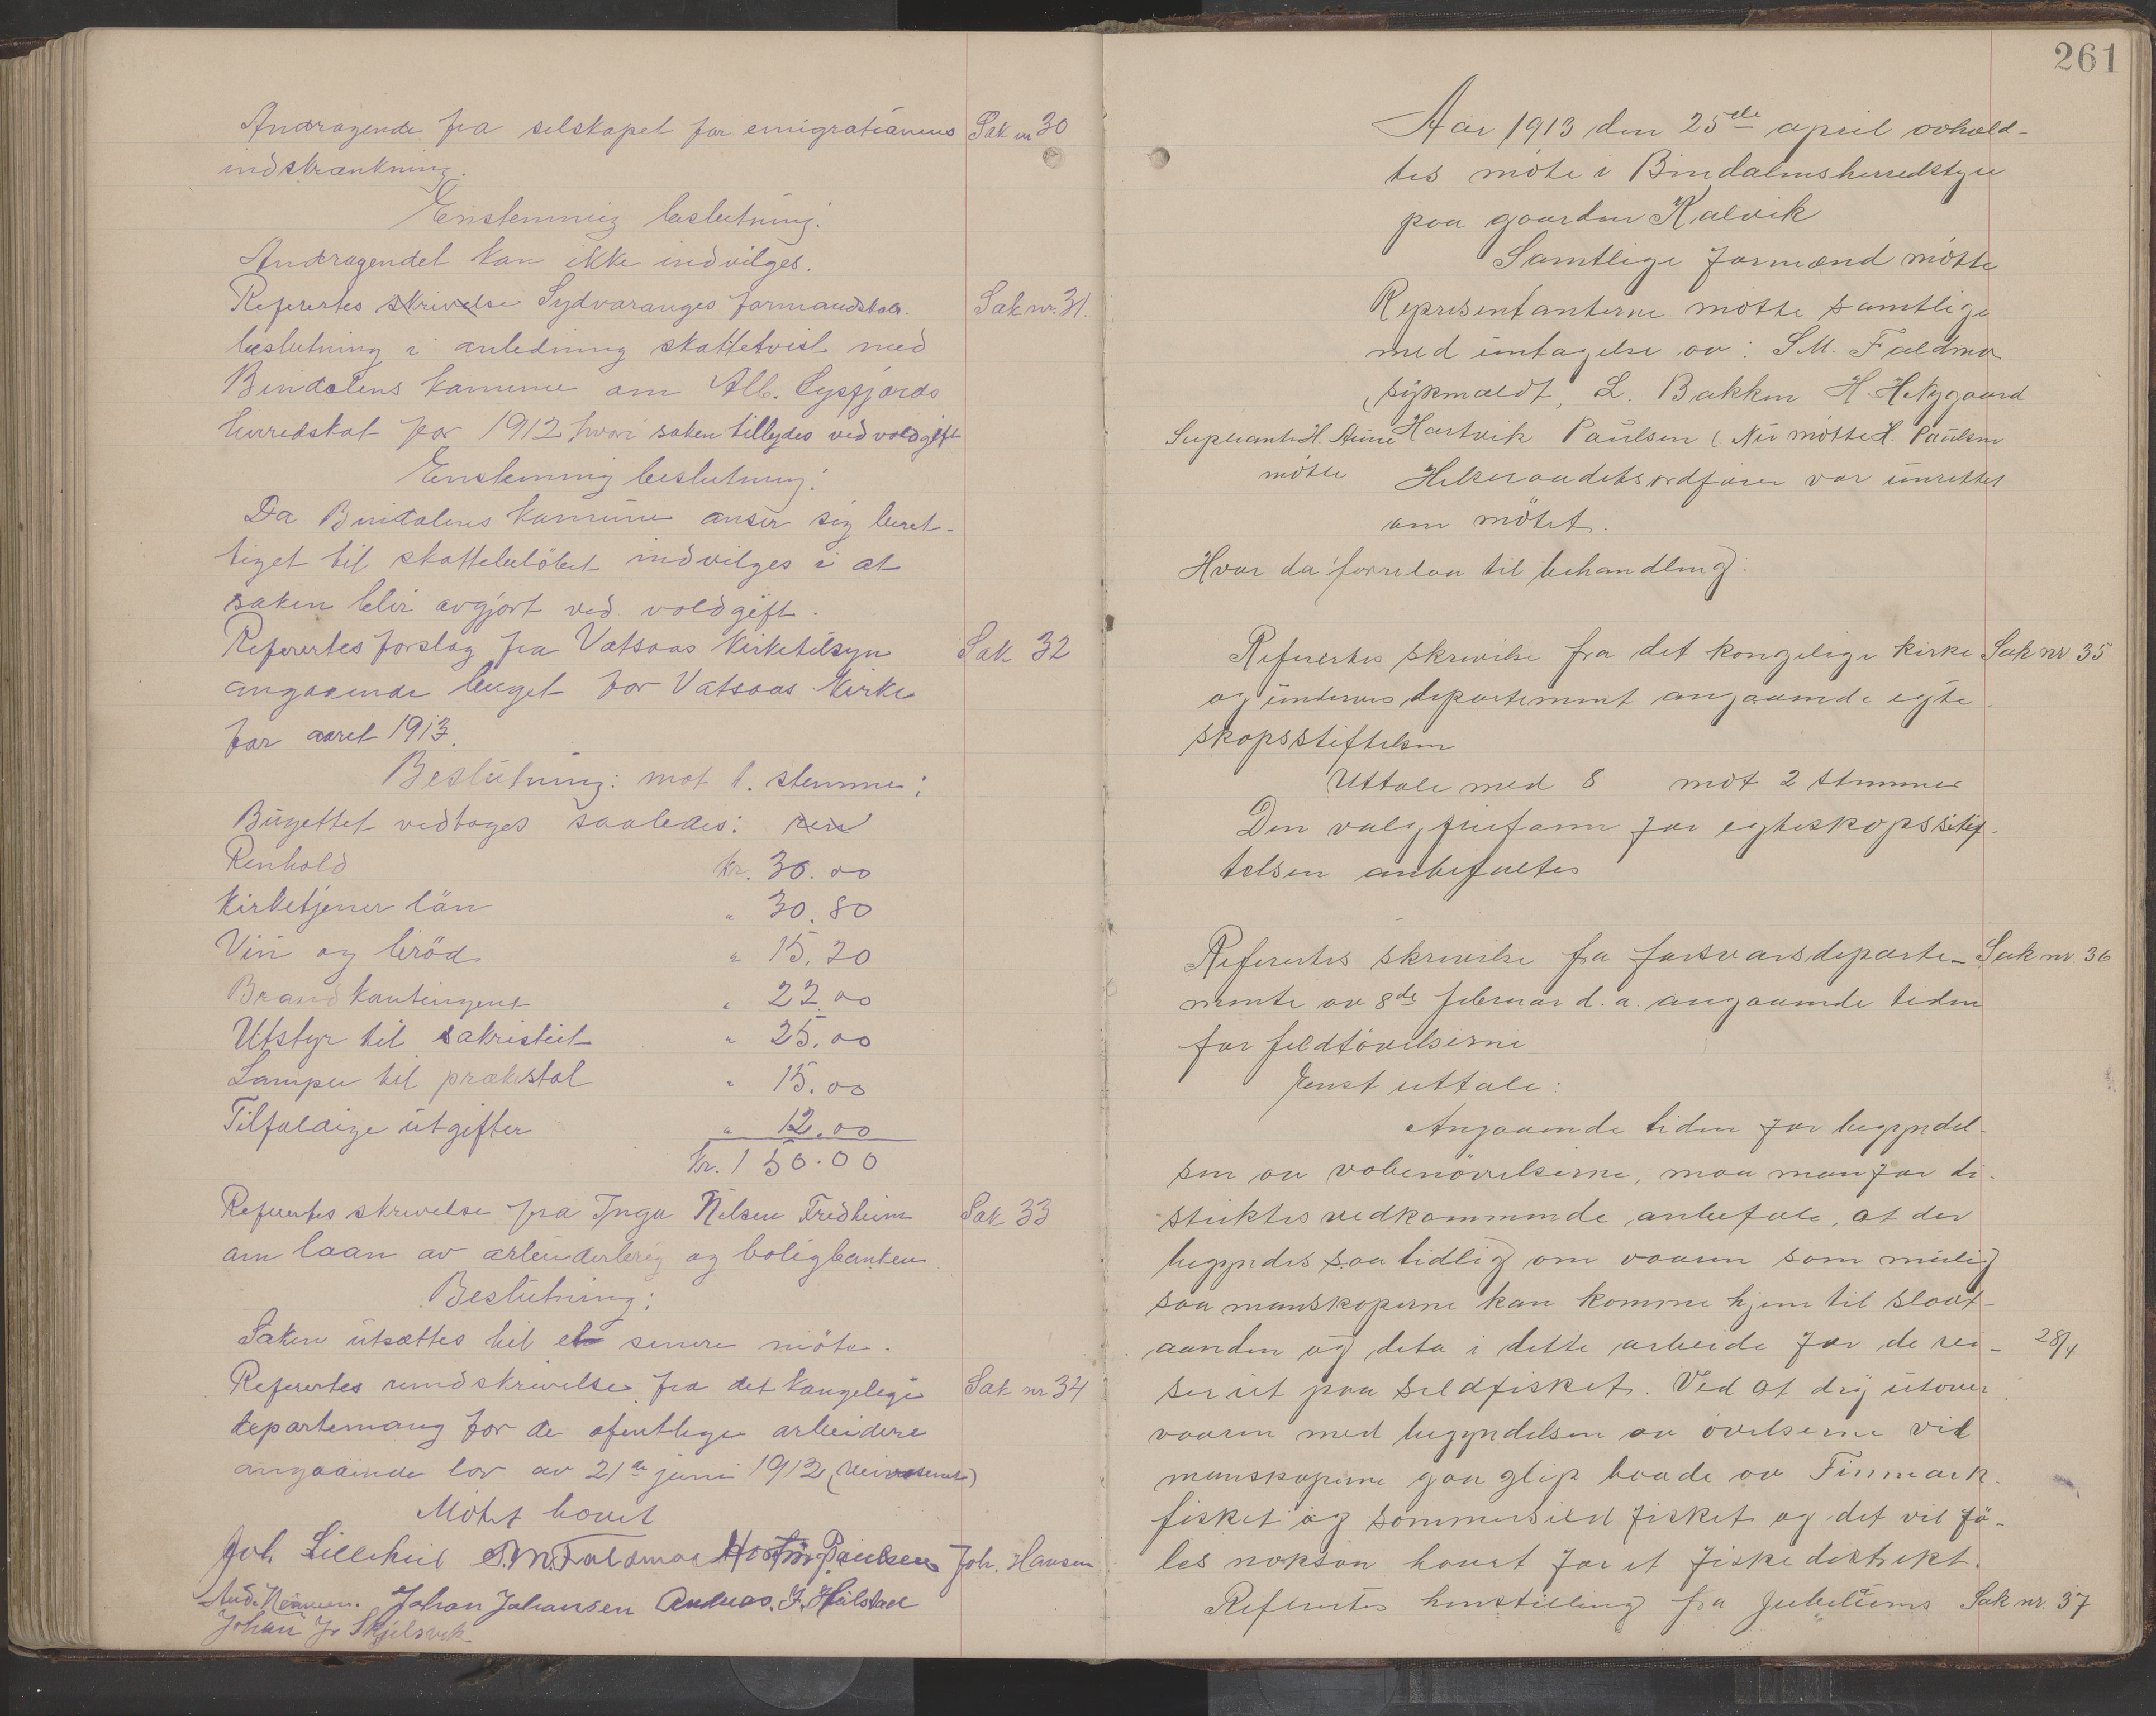 Andragende fra selskapet for emigrationens Sak nr 30
indskrænkning.
Enstemmig beslutning:
Andragendet kan ikke indvilges.
Refertes skrivelse Sydvarangers formandskas. Sak nr. 31.
beslutning i anledning skattetvist med
Bindalens kamune om Alb. Lysfjords
herredskat for 1912 hvori saken tillydes ved voldgift
Enstemmig beslutning:
Da Bindalens kamune anser sig beret-
tiget til skattebeløbet indvilges i at
saken blir avgjort ved voldgift.
Referertes forslag fra Vatsaas kirketilsyn Sak 32
angaaende buget for Vatsaas kirke
for aaret 1913.
Beslutning: mot 1. stemme:
Bugettet vedtages saaledes: ren
Renhold kr. 30.00
Kirketjener løn " 30.80
Vin og brød " 15.20
Brandkontingent " 22.00
Utstyr til sakristiet " 25.00
Lampe til prækestol " 15.00
Tilfældige utgifter " 12.00
Kr. 150.00
Referertes skrivelse fra Inga Nilsen Fredheim Sak 33
om laan av arbeiderbrug og boligbanken
Beslutning:
Saken utsættes til et senere møte.
Referertes rundskrivelse fra det kongelige Sak nr 34
departemang for de ofentlige arbeidere
angaaende lov av 21de juni 1912 (Veivæsenet)
Møtet hævet
Joh Lilleheil S.M. Faldmo Hartvig Paulsen Joh. Hansen
Johan Johansen Andreas. J. Hølstad
Johan Jr Skjelsvik
261
Aar 1913 den 25de april avhold-
tes møte i Bindalensherredstyre
paa gaarden Kalvik
Samtlige formænd møtte
Representanterne møtte samtlige
med undtagelse av: S.M. Faldmo
(sykmeldt, L. Bakken H. H. Nygaard
Supleant H. Aune Hartvik Paulsen (Nu møtte H. Paulsen
møtte Helseraadetsordfører var unrettet
om møtet.
Hvor da forrelaa til behandling:
Refertes skrivelse fra det kongelige kirke Sak nr. 35
og undervisdepartement angaaende egte
skapsstiftelsen
Uttale med 8 mot 2 stemmer
Den valgfrieform for egteskapsstif-
telsen anbefaltes
Refertes skrivelse fra forsvarsdeparte- Sak nr. 36
mente av 8de februar d.a. angaaende tiden
for feldtøvelserne
Enst uttale:
Angaaende tiden for begyndel-
sen av vabenøvelserne, maa man for di-
striktes vedkommende anbefale, at der
begyndes saa tidlig om vaaren som mulig
saa manskaperne kan komme hjem til slaat-
aanden og deta i dette arbeide før de rei- 28/4
ser ut paa sildfisket. Ved at dry utover
vaaren med begyndelsen av øvelserne vil
manskaperne gaa glip baade av Finmark
fisket og sommersild fisket og det vil fø-
les noksaa haardt for et fiskedistrikt.
Refertes henstilling fra Jubilæums Sak nr. 37